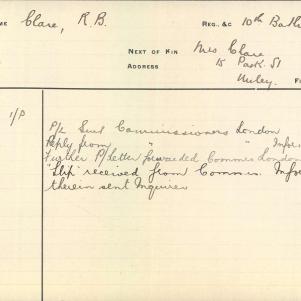 ME Clare, R.B. REG., &C 10th Batt
NEXT OF KIN Mrs Clare
ADDRESS 15 Park St
Unley. F
1/P
P/c Sent Commissioners London
Reply from " Infor
Further P/Letter forwarded Commrs London
"Slip" received from Commrs. Infor
therein sent Inquirer